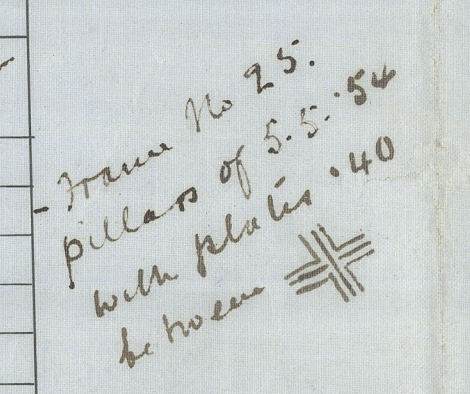 Frame No 25.
pillars of 5.5.·54
with plates ·40
between